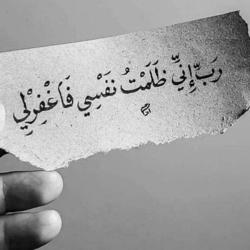 رَبِّ إِنِّي ظَلَمْتُ نَفْسِي فَاغْفِرْلِي